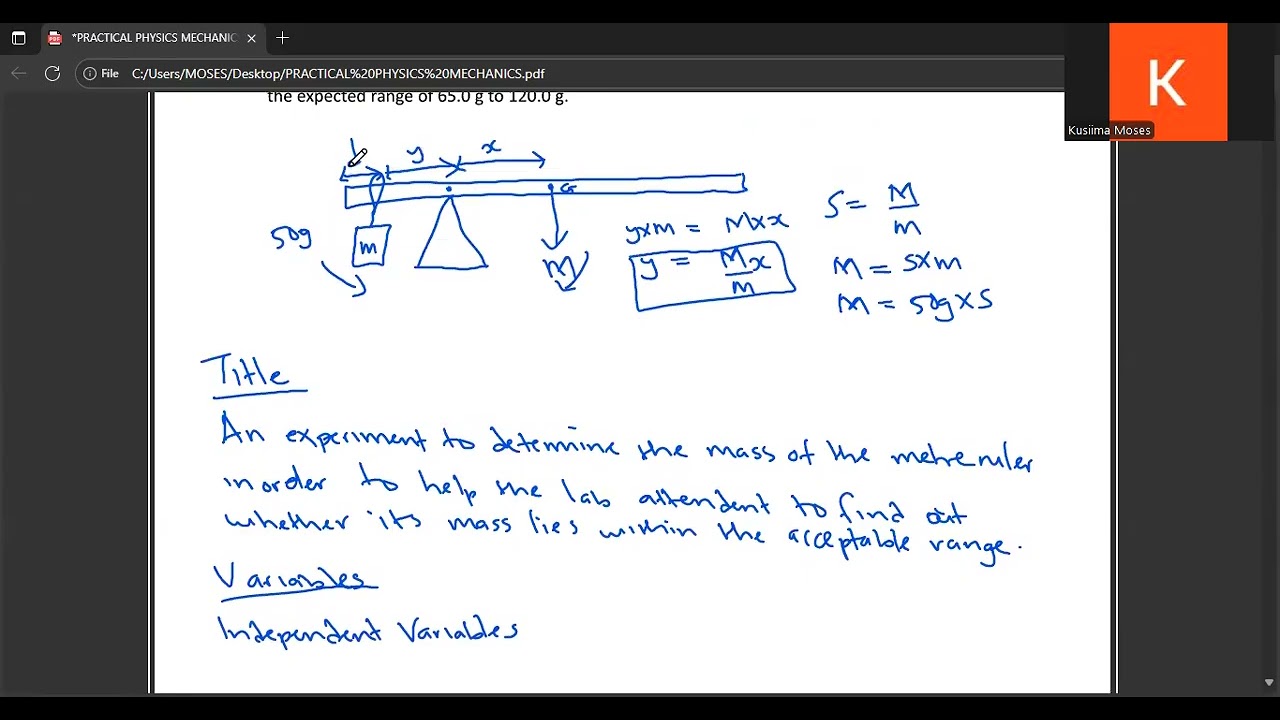 *PRACTICAL PHYSICS MECHANIC
File C:/Users/MOSES/Desktop/PRACTICAL%20PHYSICS%20MECHANICS.pdf
K
Kusiima Moses
the expected range of 65.0 g to 120.0 g.
y x
G
50g
m
M
y×m = M×x
y = M/m x
S = M/m
M = S×m
M = 50g×S
Title
An experiment to determine the mass of the metre ruler
in order to help the lab attendent to find out
whether its mass lies within the acceptable range.
Variables
Independent Variables